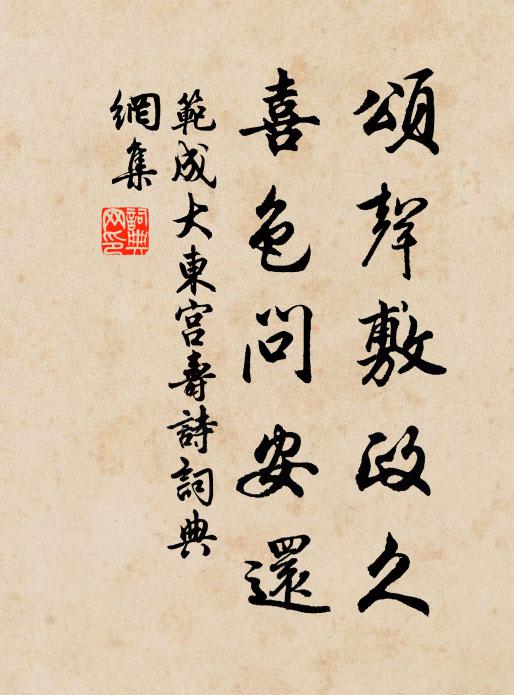 頌聲敷政久
喜色問安還
範成大東宮壽詩詞典
網集
詞典网印